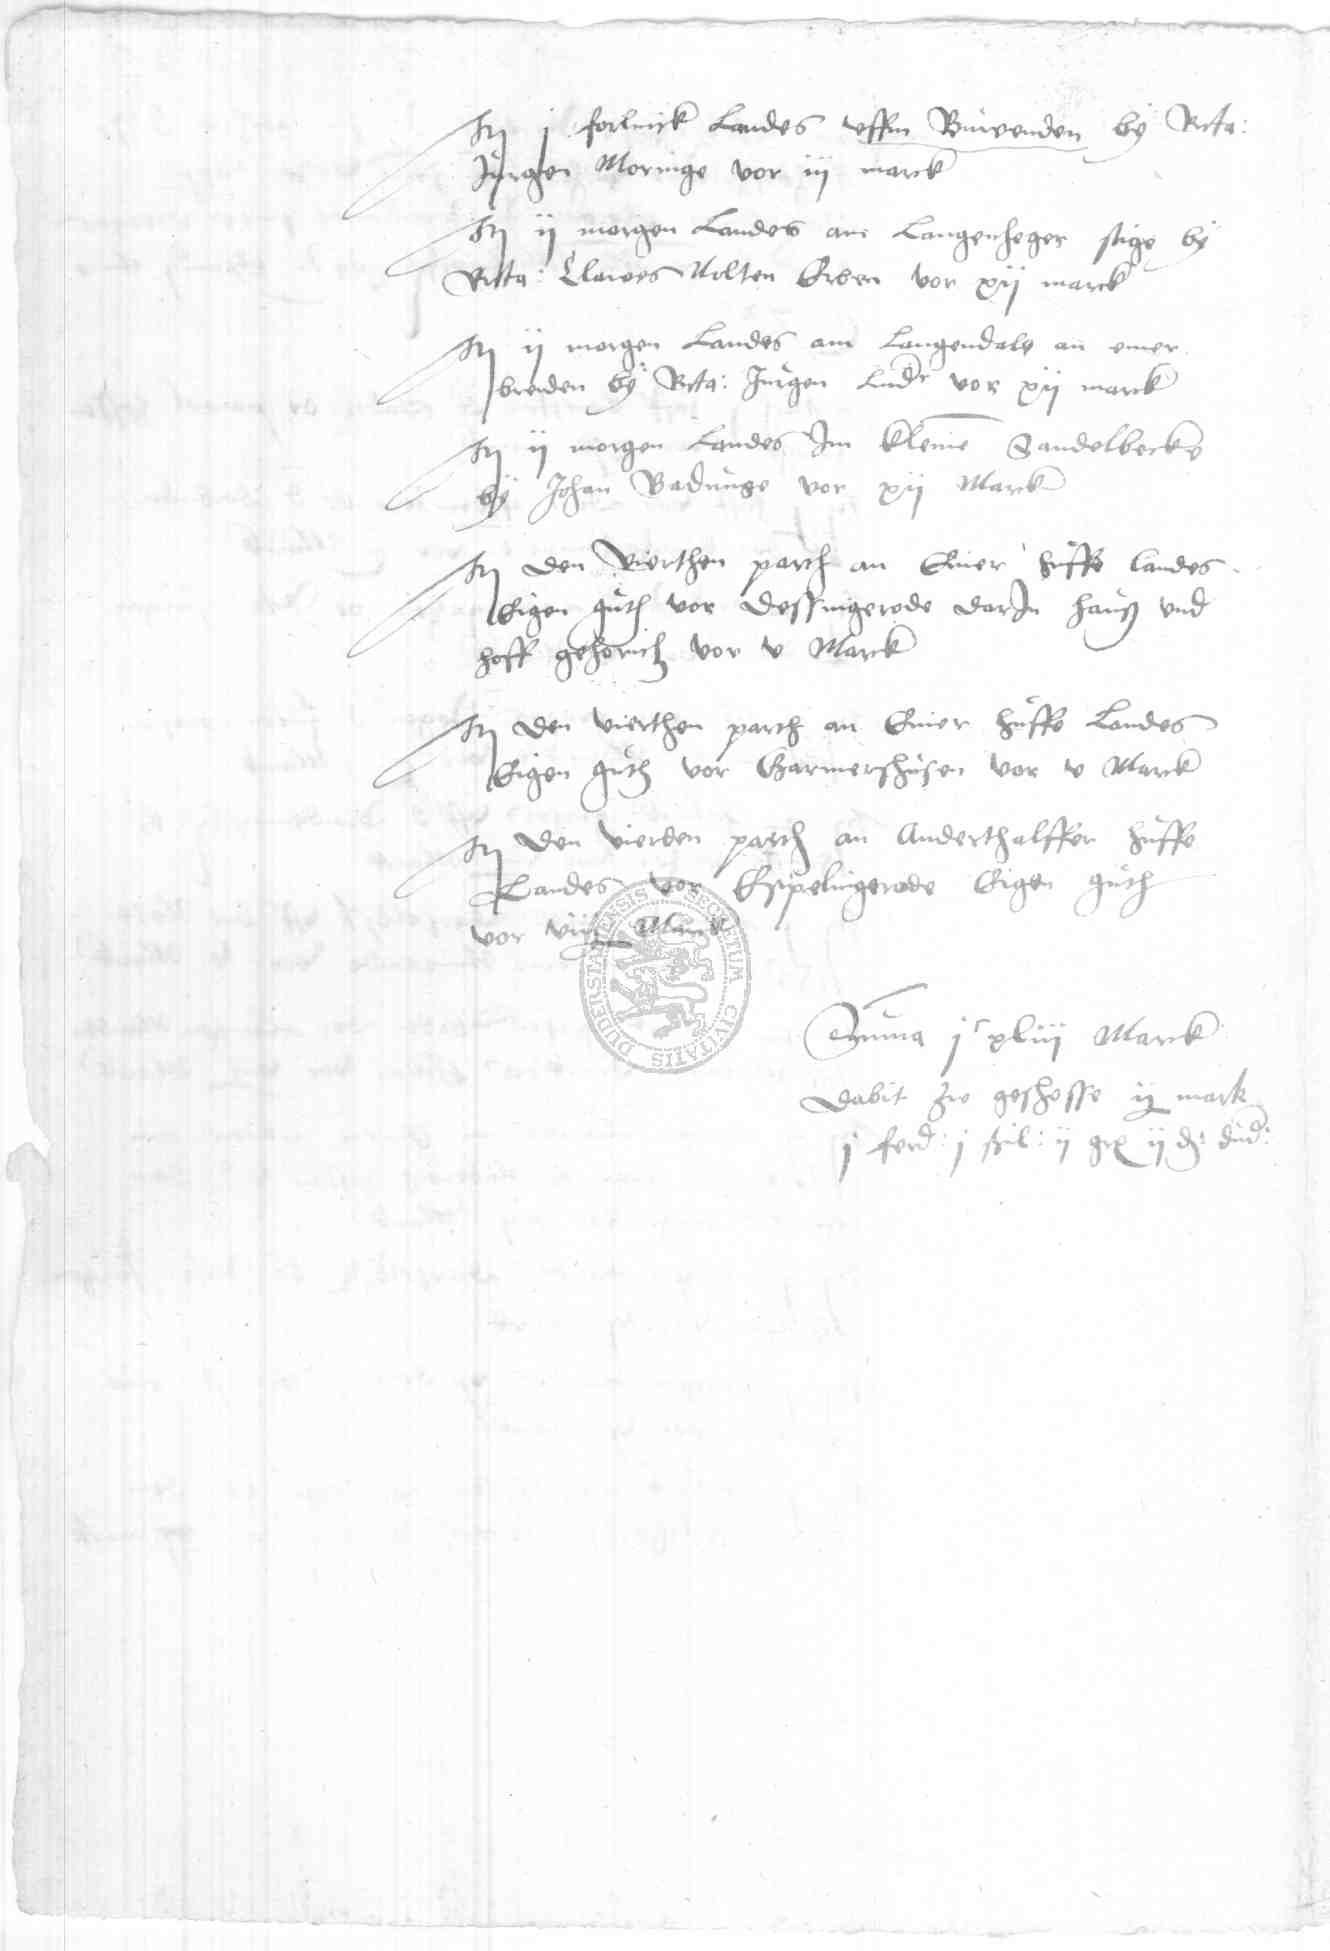 It j forlinck Landes vffm Buwenden by Rcta:
Jurgen Moringe vor iij marck
It ij morgen Landes am Langenheger stige by
Rcta: Clawes Nolten Erben vor xij marck
It ij morgen Landes am Langendale an einer
breiden by Rcta: Jurgen Luder vor xij marck
It ij morgen Landes Im kleine Sandelbecke
by Johan Badunge vor xij Marck
It den vierthen parth an Einer huffe landes
Eigen guth vor Dessingerode darIn hauß vnd
hoff gehorich vor v Marck
It den vierthen parth an Einer huffe Landes
Eigen guth vor Germershusen vor v Marck
It den vierden parth an Anderthalffer huffe
Landes vor Espelingerode Eigen guth
vor viij Marck
SECRETUM CIVITATIS DUDERSTADENSIS
Suma jc xliij Marck
dabit zu geschosse ij mark
j ferd: j schil: ij gr ij d: dud: